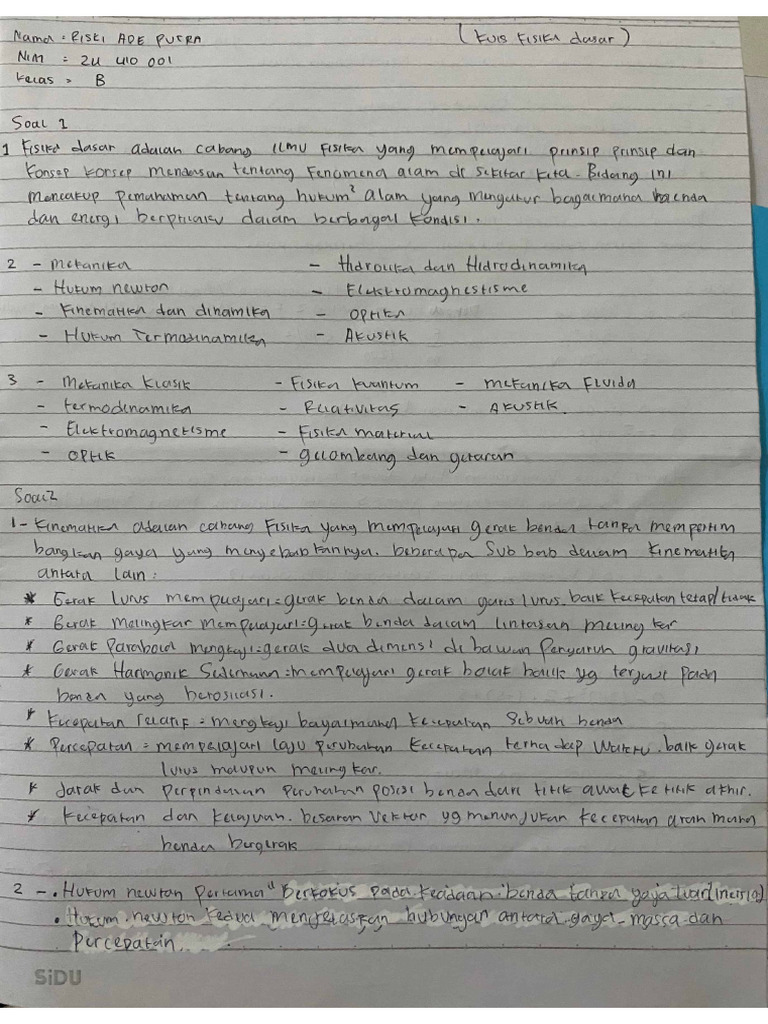 Nama : RISKI ADE PUTRA (KUIS FISIKA dasar)
NIM : 24 410 001
Kelas : B
Soal 1
1 Fisika dasar adalah cabang ILMU FISIKA yang mempelajari prinsip prinsip dan
Konsep konsep mendasar tentang Fenomena alam di sekitar kita. Bidang INI
mencakup pemahaman tentang hukum² alam yang mengatur bagaimana benda
dan energi berprilaku dalam berbagai kondisi.
2 - Mekanika - Hidrolika dan Hidrodinamika
- Hukum newton - Elektromagnestisme
- Kinematika dan dinamika - OPtika
- Hukum Termodinamika - AKUSTIK
3 - Mekanika Klasik - Fisika kuantum - mekanika Fluida
- termodinamika - Relativitas - AKUSTIK.
- Elektromagnetisme - Fisika material
- OPtik - gelombang dan getaran
Soal 2
1 - Kinematika adalah cabang Fisika yang mempelajari gerak benda tanpa mempertim
bangkan gaya yang menyebabkannya. beberapa Sub bab dalam Kinematika
antara lain :
* Gerak lurus mempelajari = gerak benda dalam garis lurus. baik kecepatan tetap/tidak
* Gerak Melingkar mempelajari = gerak benda dalam lintasan melingkar
* Gerak Parabola mengkaji = gerak dua dimensi di bawah Pengaruh gravitasi
* Gerak Harmonik Sederhana = mempelajari gerak bolak balik yg terjadi pada
benda yang berosilasi.
* Kecepatan relatif = mengkaji bagaimana kecepatan Sebuah benda
* Percepatan = mempelajari laju perubahan kecepatan terhadap waktu. baik gerak
lurus maupun melingkar.
* Jarak dan Perpindahan Perubahan posisi benda dari titik awal ke titik akhir.
* Kecepatan dan kelajuan. besaran Vektor yg menunjukan kecepatan arah mana
benda bergerak
2 - . Hukum newton Pertama " Berfokus pada keadaan benda tanpa gaya luar (inersia)
. Hukum newton kedua menjelaskan hubungan antara gaya - massa dan
Percepatan.
SiDU